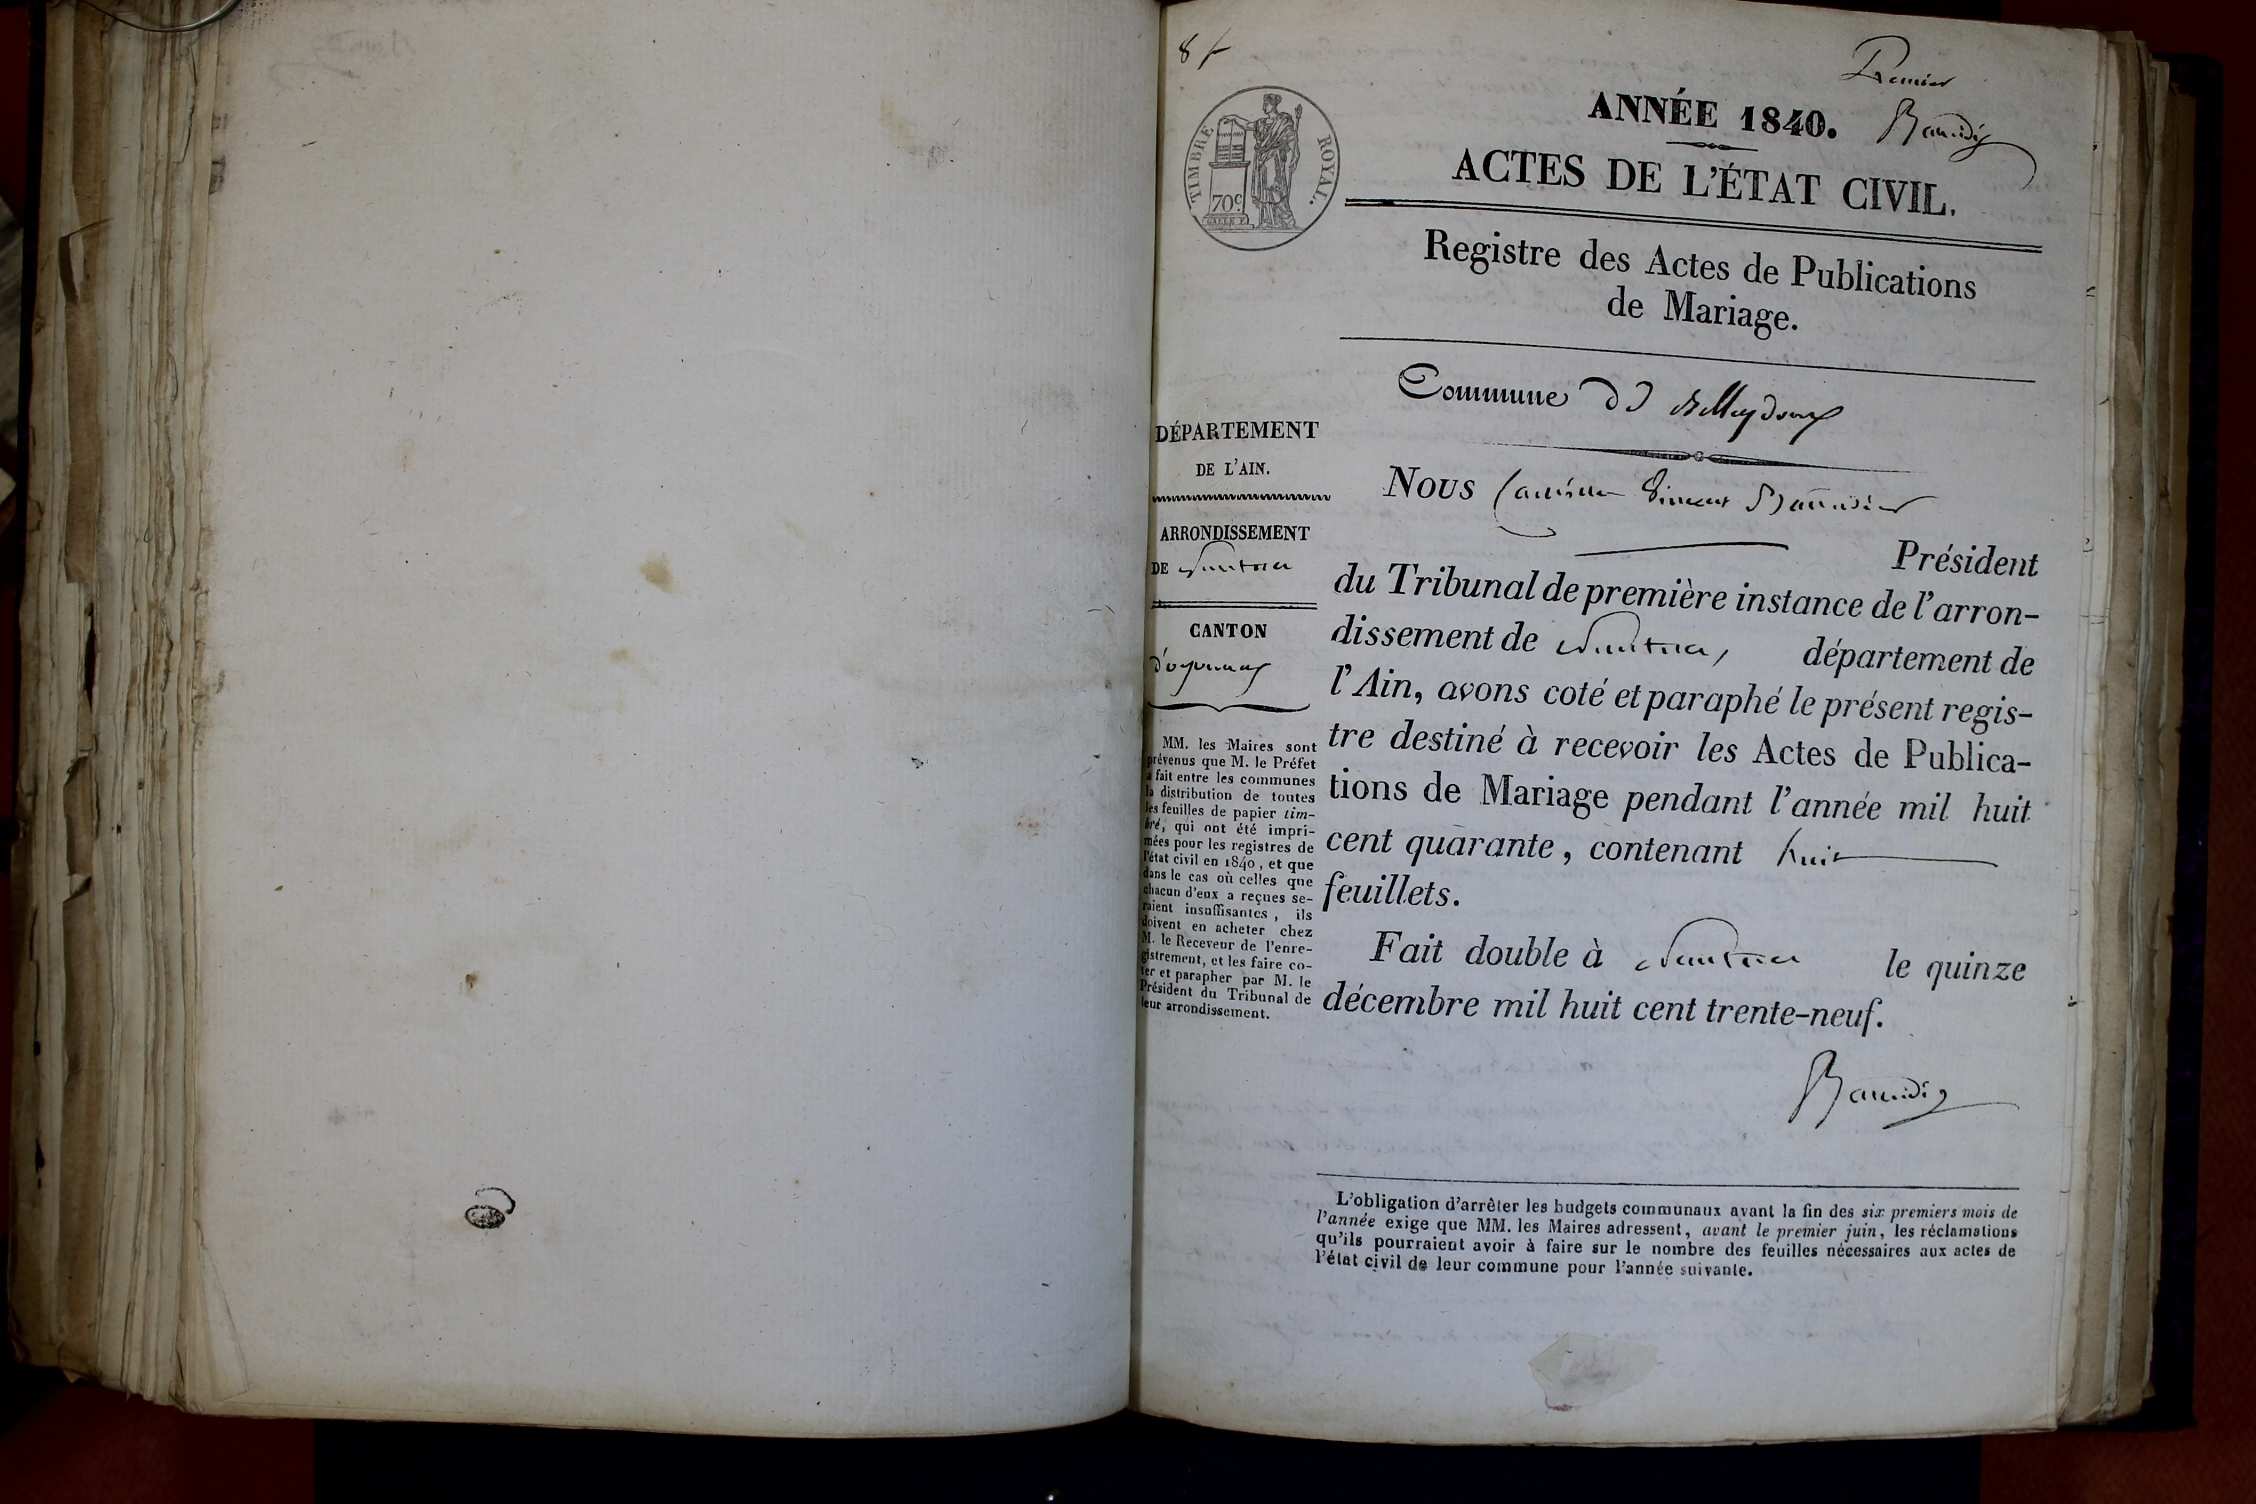 8 f
Premier
ANNÉE 1840.
TIMBRE ROYAL.
70 c.
ACTES DE L'ÉTAT CIVIL.
Registre des Actes de Publications
de Mariage.
Commune de Belleydoux
DÉPARTEMENT
DE L'AIN.
ARRONDISSEMENT
DE Nantua
CANTON
d'oyonnax
MM. les Maires sont
prévenus que M. le Préfet
a fait entre les communes
la distribution de toutes
les feuilles de papier tim-
bré, qui ont été impri-
mées pour les registres de
l'état civil en 1840, et que
dans le cas où celles que
chacun d'eux a reçues se-
raient insuffisantes, ils
doivent en acheter chez
M. le Receveur de l'enre-
gistrement, et les faire co-
ter et parapher par M. le
Président du Tribunal de
leur arrondissement.
Nous Vincent
Président
du Tribunal de première instance de l'arron-
dissement de Nantua, département de
l'Ain, avons coté et paraphé le présent regis-
tre destiné à recevoir les Actes de Publica-
tions de Mariage pendant l'année mil huit
cent quarante, contenant huit
feuillets.
Fait double à Nantua le quinze
décembre mil huit cent trente-neuf.
L'obligation d'arrêter les budgets communaux avant la fin des six premiers mois de
l'année exige que MM. les Maires adressent, avant le premier juin, les réclamations
qu'ils pourraient avoir à faire sur le nombre des feuilles nécessaires aux actes de
l'état civil de leur commune pour l'année suivante.